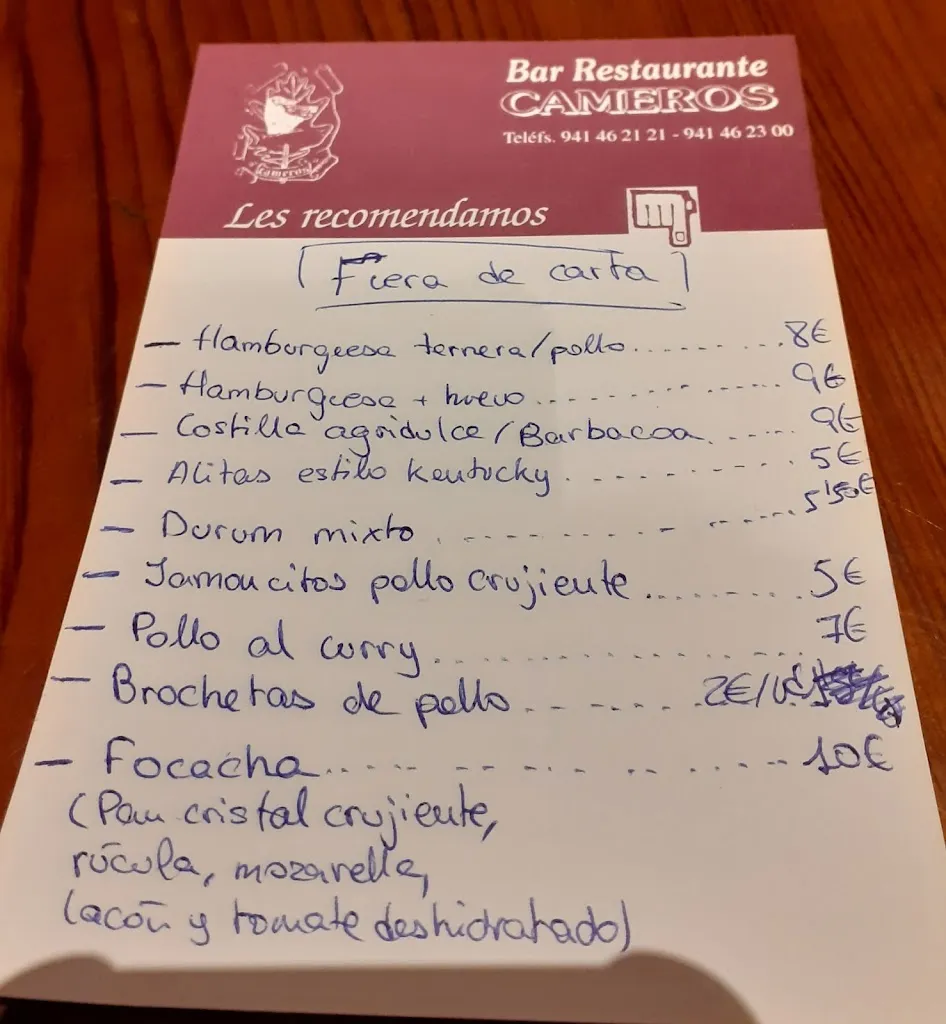 Bar Restaurante
CAMEROS
Teléfs. 941 46 21 21 - 941 46 23 00
Cameros
Les recomendamos
Fuera de carta
- Hamburguesa ternera/pollo.......... 8€
- Hamburguesa + huevo.......... 9€
- Costilla agridulce/Barbacoa....... 9€
- Alitas estilo Kentucky.......... 5€
- Durum mixto.......... 5'50€
- Jamoncitos pollo crujiente.......... 5€
- Pollo al curry.......... 7€
- Brochetas de pollo.......... 2€/
- Focacha.......... 10€
(Pan cristal crujiente,
rúcula, mozarella,
lacón y tomate deshidratado)